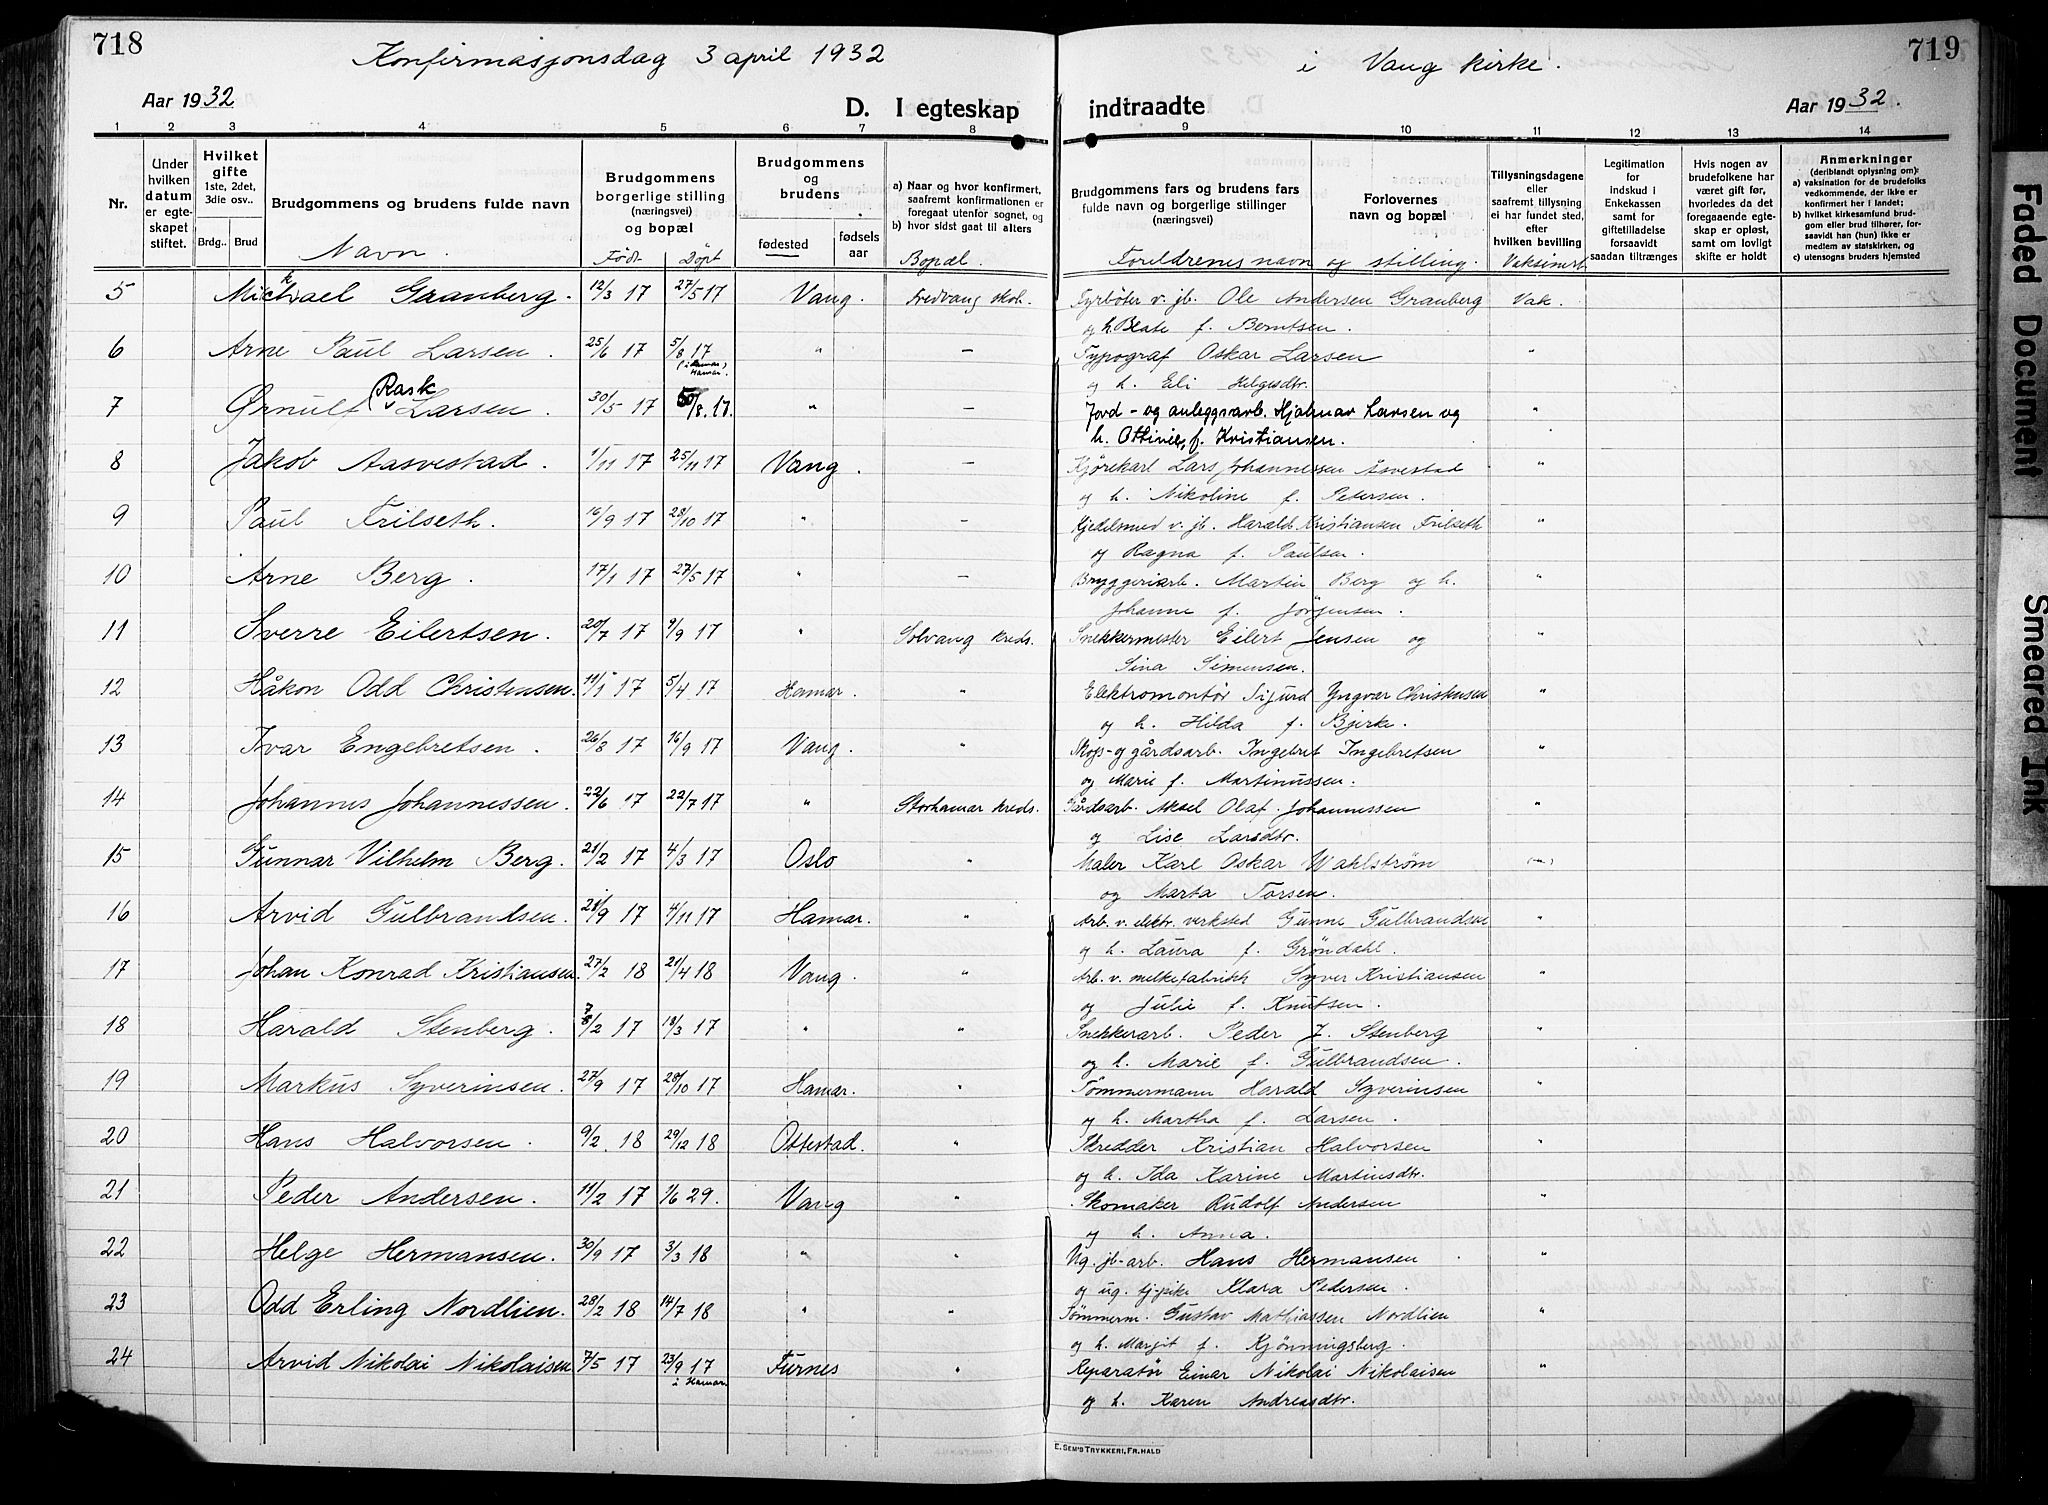 718
Konfirmasjonsdag 3 april 1932 i Vang kirke.
719
Aar 1932
D. I egteskap indtraadte
Aar 1932.
1 2 3 4 5 6 7 8 9 10 11 12 13 14
Nr.
Under hvilken datum er egteskapet stiftet.
Hvilket gifte 1ste, 2det, 3die osv..
Brdg. Brud
Brudgommens og brudens fulde navn
Navn.
Brudgommens borgerlige stilling (næringsvei) og bopæl
Født Döpt
Brudgommens og brudens
fødested
fødsels aar
a) Naar og hvor konfirmert, saafremt konfirmationen er foregaat utenfor sognet, og
b) hvor sidst gaat til alters
Bopæl.
Brudgommens fars og brudens fars fulde navn og borgerlige stillinger (næringsvei)
Forlovernes navn og bopæl
Foreldrenes navn og stilling.
Tillysningsdagene eller saafremt tillysning ei har fundet sted, efter hvilken bevilling
Vaksinert
Legitimation for indskud i Enkekassen samt for giftetilladelse forsaavidt saadan tiltrænges
Hvis nogen av brudefolkene har været gift før, hvorledes da det foregaaende egteskap er opløst, samt om lovligt skifte er holdt
Anmerkninger (deriblandt oplysning om):
a) vaksination for de brudefolks vedkommende, der ikke er konfirmert her i landet;
b) hvilket kirkesamfund brudgom eller brud tilhører, forsaavidt han (hun) ikke er medlem av statskirken, og
c) utensogns bruders hjemsted
5 Michael Granberg. 12/3 17 27/5 17 Vang. Fredvang skol. Fyrböter v. jb. Ole Andersen Granberg Vak.
og h. Beate f. Berntsen.
6 Arne Paul Larsen. 25/6 17 5/8 17 (i Hamar) " — Typograf Oskar Larsen "
og h. Eli Helgesdtr.
7 Ørnulf Rask Larsen. 30/5 17 /8.17. " — Jord- og anleggsarb. Hjalmar Larsen og "
h. Ottivie, f. Kristiansen.
8 Jakob Aasvestad. 1/11 17 25/11 17 Vang. — Kjørekarl Lars Johannessen Åsvestad "
og h. Nikoline f. Petersen.
9 Paul Frilseth. 16/9 17 28/10 17 " — Kjedelsmed v. jb. Harald Kristiansen Frilseth "
og Ragna f. Paulsen.
10 Arne Berg. 17/1 17 27/5 17 " — Bryggeriarb. Martin Berg og h. "
Johanne f. Jörgensen.
11 Sverre Eilertsen. 20/7 17 9/9 17 " Solvang kreds. Snekkermester Eilert Jensen og "
Sina Simensen.
12 Håkon Odd Christensen. 11/1 17 5/4 17 Hamar. " Elektromontör Sigurd Yngvar Christensen "
og h. Hilda f. Bjerke.
13 Ivar Engebretsen. 26/8 17 16/9 17 Vang. " Skogs- og gårdsarb. Ingebret Ingebretsen "
og Marie f. Martinussen.
14 Johannes Johannessen. 22/6 17 22/7 17 " Storhamar kreds. Gårdsarb. Aksel Olaf Johannessen "
og Lise Larsdtr.
15 Gunnar Vilhelm Berg. 21/2 17 4/3 17 Oslo " Maler Karl Oskar Wahlström (—)
og Marta Torsen.
16 Arvid Gulbrandsen. 28/9 17 4/11 17 Hamar. " Arb. v. elektr. verksted Gunne Gulbrandsen "
og h. Laura f. Gröndahl.
17 Johan Konrad Kristiansen. 27/2 18 21/4 18 Vang. " Arb. v. melkefabrikk Syver Kristiansen "
og Julie f. Knutsen.
18 Harald Stenberg. /2 17 18/3 17 " " Snekkerarb. Peder J. Stenberg "
og h. Marie f. Gulbrandsen.
19 Markus Syverinsen. 27/9 17 28/10 17 Hamar. " Tömmermann Harald Syverinsen "
og h. Martha f. Larsen.
20 Hans Halvorsen. 9/2. 18 29/12 18 Ottestad. " Skredder Kristian Halvorsen "
og h. Ida Karine Martinsdtr.
21 Peder Andersen. 11/2 17 1/6 29. Vang " Skomaker Rudolf Andersen "
og h. Anna.
22 Helge Hermansen. 30/9 17 3/3 18 " " Ug. jb-arb. Hans Hermansen "
og ug. tj-pike Klara Pedersen.
23 Odd Erling Nordlien. 28/2 18 14/7 18 " " Tömmerm. Gustav Mathiassen Nordlien "
og h. Margit f. Kjönningsberg.
24 Arvid Nikolai Nikolaisen 7/5 17 23/9 17 i Hamar. Furnes " Reparatör Einar Nikolai Nikolaisen "
og h. Karen Andreasdtr.
E. SEM'S TRYKKERI, FR.HALD
Faded Document
Smeared Ink